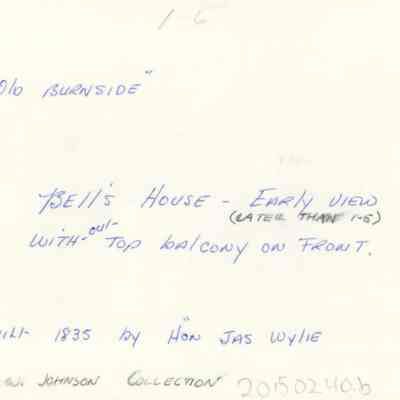 1-6
Old BURNSIDE"
Bell's House - Early view
(LATER THAN 1-5)
with-out- Top balcony on Front.
1835 by Hon Jas Wylie
JOHNSON COLLECTION 20150240.b